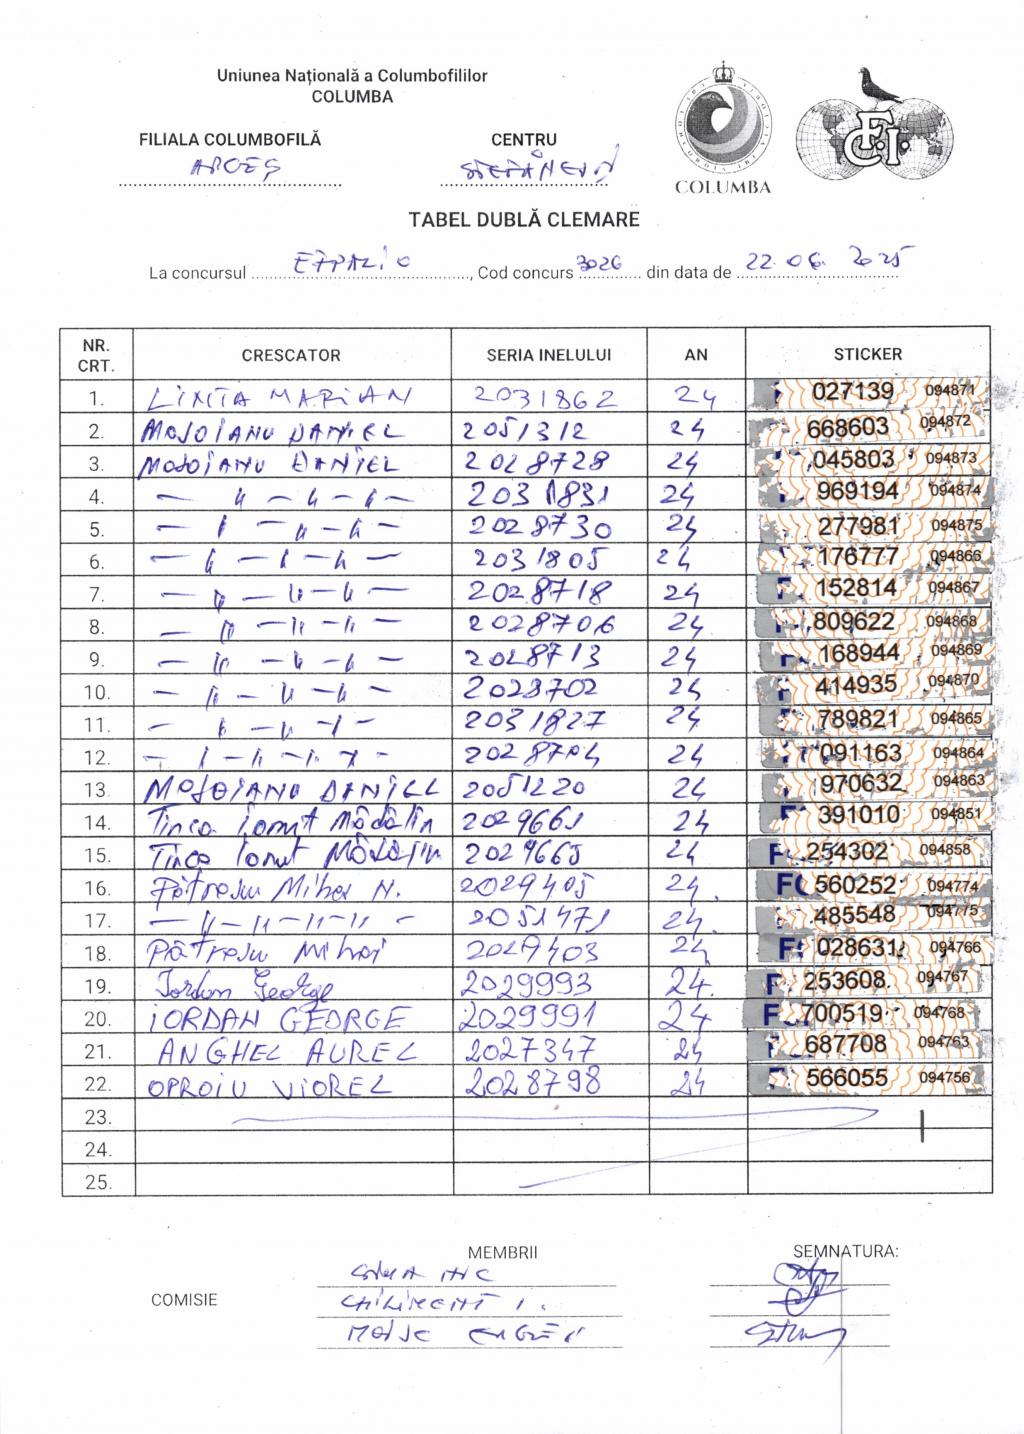 Uniunea Națională a Columbofililor
COLUMBA
FILIALA COLUMBOFILĂ
ARGEȘ
CENTRU
ȘTEFĂNEȘTI
COLUMBA
F.C.I.
TABEL DUBLĂ CLEMARE
La concursul, Cod concurs 3026 din data de 22.06.2025
NR. CRT. CRESCATOR SERIA INELULUI AN STICKER
1. LINTA MARIAN 2031862 24 027139 094871
2. MOJOIANU DANIEL 2051312 24 668603 094872
3. MOJOIANU DANIEL 2028728 24 045803 094873
4. — 〃 — 〃 — 〃 — 2031831 24 969194 094874
5. — 〃 — 〃 — 〃 2028730 24 277981 094875
6. — 〃 — 〃 — 〃 — 2031805 24 176777 094866
7. — 〃 — 〃 — 〃 — 2028718 24 152814 094867
8. — 〃 — 〃 — 〃 — 2028706 24 809622 094868
9. — 〃 — 〃 — 〃 — 2028713 24 168944 094869
10. — 〃 — 〃 — 〃 — 2028702 24 414935 094870
11. — 〃 — 〃 — 〃 — 2031827 24 789821 094865
12. — 〃 — 〃 — 〃 — 〃 — 2028704 24 091163 094864
13. MOJOIANU DANIEL 2051220 24 970632 094863
14. Tinca Ionuț Mădălin 2029661 24 391010 094851
15. Tinca Ionuț Mădălin 2029665 24 254302 094858
16. Pătrașcu Mihai N. 2029405 24 560252 094774
17. — 〃 — 〃 — 〃 — 〃 — 2051471 24 485548 094775
18. Pătrașcu Mihai 2029403 24 028631 094766
19. Iordan George 2029993 24 253608 094767
20. IORDAN GEORGE 2029991 24 700519 094768
21. ANGHEL AUREL 2027347 24 687708 094763
22. OPROIU VIOREL 2028798 24 566055 094756
23.
24.
25.
MEMBRII
SEMNATURA:
COMISIE